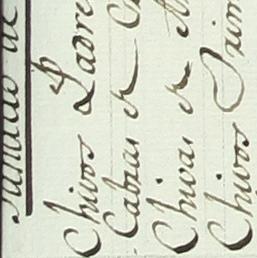 Ganado de
Chivos Padre
Cabras de C
Chivas de
Chivos Prim